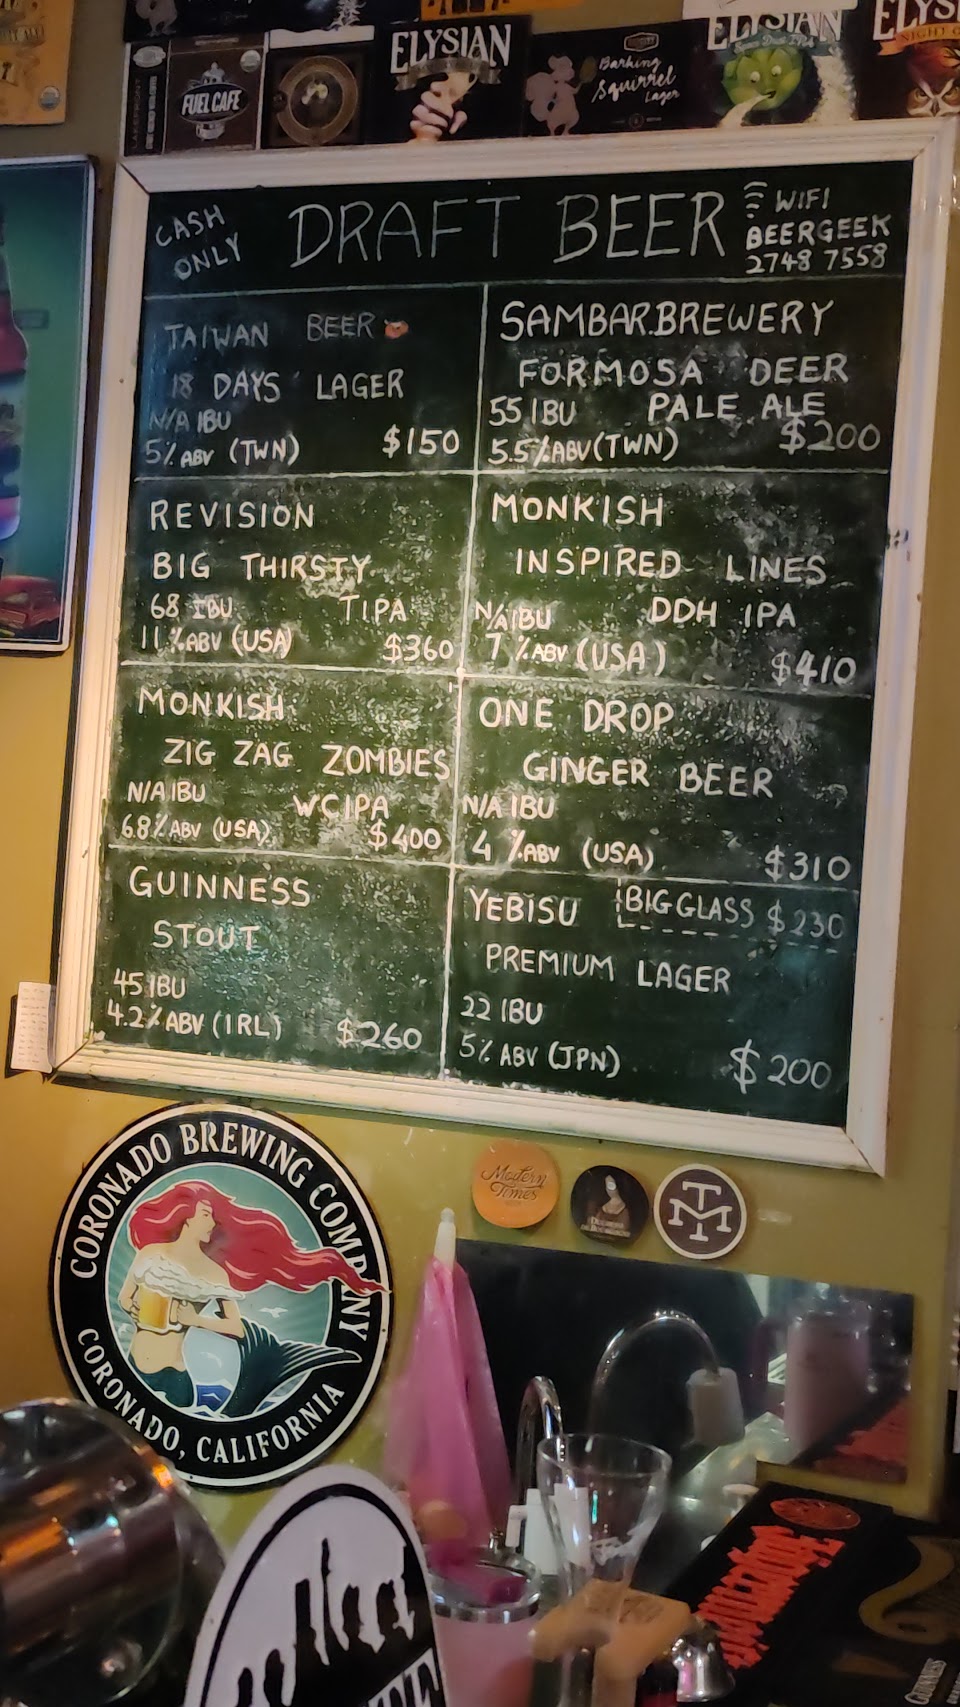 ELYSIAN
ELYSIAN
FUEL CAFE
LAKEFRONT
Barking
Squirrel
Lager
CASH
ONLY
DRAFT BEER
WIFI
BEERGEEK
2748 7558
TAIWAN BEER
18 DAYS LAGER
N/A IBU
5% ABV (TWN) $150
SAMBAR.BREWERY
FORMOSA DEER
55 IBU PALE ALE
5.5% ABV (TWN) $200
REVISION
BIG THIRSTY
68 IBU TIPA
11% ABV (USA) $360
MONKISH
INSPIRED LINES
N/A IBU DDH IPA
7% ABV (USA) $410
MONKISH
ZIG ZAG ZOMBIES
N/A IBU WCIPA
68% ABV (USA) $400
ONE DROP
GINGER BEER
N/A IBU
4% ABV (USA) $310
GUINNESS
STOUT
45 IBU
4.2% ABV (IRL) $260
YEBISU BIG GLASS $230
PREMIUM LAGER
22 IBU
5% ABV (JPN) $200
CORONADO BREWING COMPANY
CORONADO, CALIFORNIA
Modern
Times
DUCHESSE
DE BOURGOGNE
TM